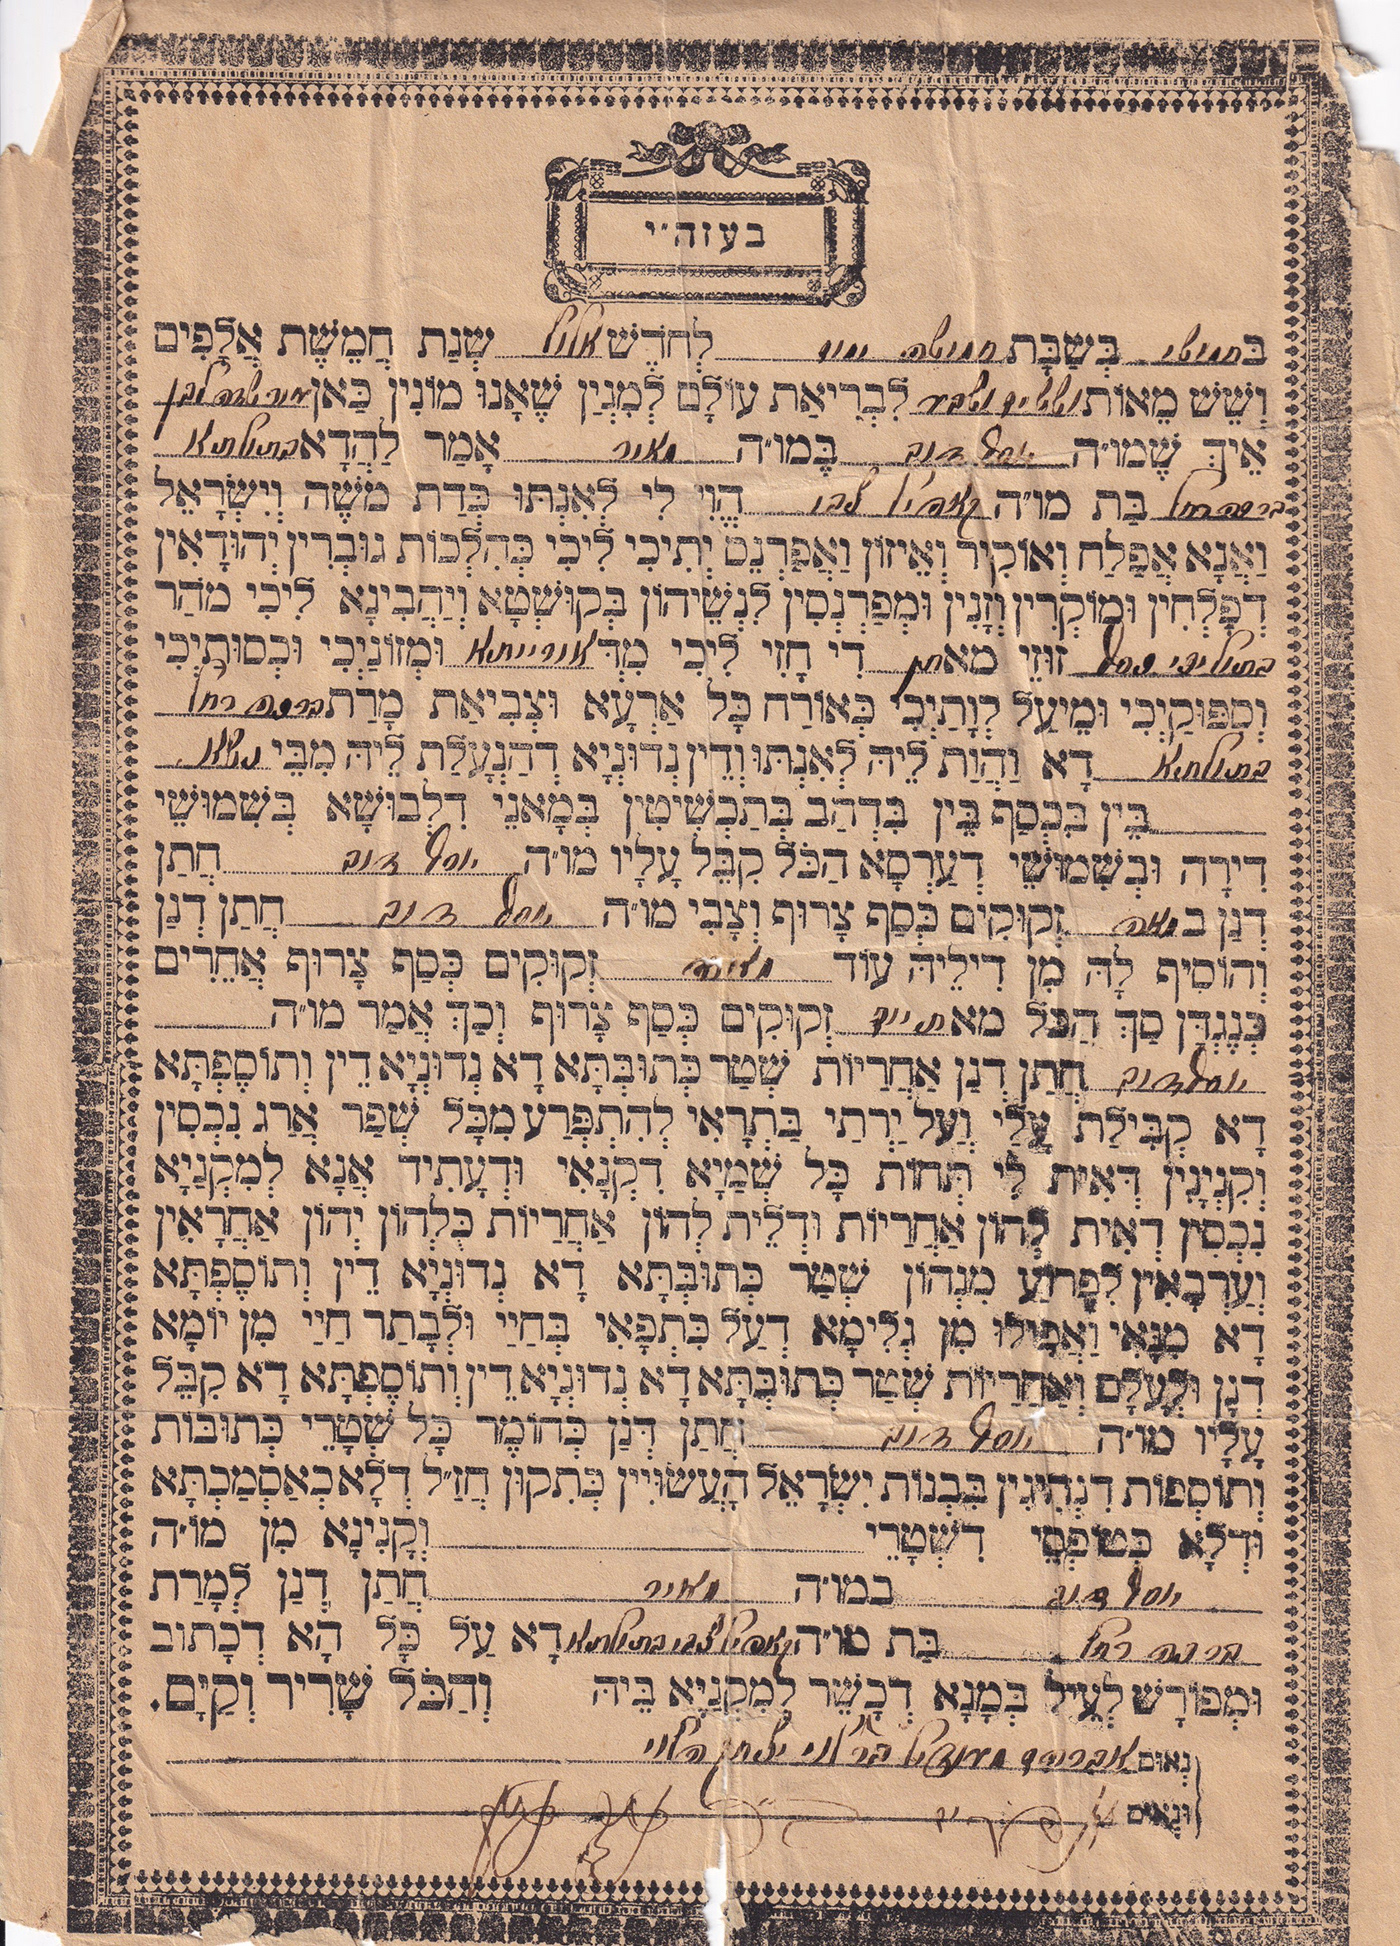 בעזה״י
בחמישי בְּשַׁבָּת חמישה יום לְחֹדֶשׁ אלול שְׁנַת חֲמֵשֶׁת אֲלָפִים
וְשֵׁשׁ מֵאוֹת וששים ושבע לִבְרִיאַת עוֹלָם לְמִנְיַן שֶׁאָנוּ מוֹנִין כַּאן
אֵיךְ שֶׁמו״ה יוסף דוב בְּמו״ה מאיר אָמַר לַהֲדָא בתולתא
רחל בַּת מו״ה הֱוִי לִי לְאִנְתּוּ כְּדַת מֹשֶׁה וְיִשְׂרָאֵל
וַאֲנָא אֲפַלַּח וְאוֹקִיר וְאֵיזוֹן וַאֲפַרְנֵס יְתִיכִי לִיכִי כְּהִלְכוֹת גּוּבְרִין יְהוּדָאִין
דְּפָלְחִין וּמוֹקְרִין וְזָנִין וּמְפַרְנְסִין לִנְשֵׁיהוֹן בְּקוּשְׁטָא וְיַהֲבִינָא לִיכִי מֹהַר
בתוליכי כסף זוּזֵי מאתן דִי חֲזִי לִיכִי מִדְּאורייתא וּמְזוֹנַיְכִי וּכְסוּתַיְכִי
וְסִפּוּקַיְכִי וּמֵיעַל לְוָתַיְכִי כְּאוֹרַח כָּל אַרְעָא וּצְבִיאַת מָרַת רחל
בתולתא דָא וַהֲוַת לֵיהּ לְאִנְתּוּ וְדֵין נְדוּנְיָא דְהַנְעָלַת לֵיהּ מִבֵּי נשא
בֵּין בִּכְסַף בֵּין בִּדְהַב בְּתַכְשִׁיטִין בְּמָאנֵי דִלְבוּשָׁא בְּשִׁמוּשֵׁי
דִירָה וּבְשִׁמוּשֵׁי דְעַרְסָא הַכֹּל קִבֵּל עָלָיו מו״ה יוסף דוב חֲתַן
דְּנַן במאה זְקוּקִים כֶּסֶף צָרוּף וְצָבִי מו״ה יוסף דוב חֲתַן דְּנַן
וְהוֹסִיף לָהּ מִן דִילֵיהּ עוֹד מאה זְקוּקִים כֶּסֶף צָרוּף אֲחֵרִים
כְּנֶגְדָּן סַךְ הַכֹּל מאתיים זְקוּקִים כֶּסֶף צָרוּף וְכַךְ אֲמַר מו״ה
יוסף דוב חֲתַן דְּנַן אַחֲרַיּוֹת שְׁטַר כְּתוּבְּתָא דָא נְדוּנְיָא דֵין וְתוֹסֶפְתָּא
דָא קַבִּילַת עָלַי וְעַל יָרְתַי בַּתְרָאִי לְהִתְפְּרַע מִכָּל שְׁפַר אֲרַג נִכְסִין
וְקִנְיָנִין דְּאִית לִי תְּחוֹת כָּל שְׁמַיָּא דִקְנָאִי וּדְעָתִיד אֲנָא לְמִקְנַיָּא
נִכְסִין דְּאִית לְהוֹן אַחֲרַיּוֹת וּדְלֵית לְהוֹן אַחֲרַיּוֹת כֻּלְהוֹן יְהוֹן אַחֲרָאִין
וְעַרְבָאִין לִפְרוֹעַ מִנְהוֹן שְׁטַר כְּתוּבְּתָא דָא נְדוּנְיָא דֵין וְתוֹסֶפְתָּא
דָא מִנָּאִי וַאֲפִילוּ מִן גְּלִימָא דְעַל כִּתְפָאִי בְּחַיַּי וּלְבָתַר חַיַּי מִן יוֹמָא
דְנָן וּלְעָלַם וְאַחֲרַיּוֹת שְׁטַר כְּתוּבְּתָא דָא נְדוּנְיָא דֵין וְתוֹסֶפְתָּא דָא קִבֵּל
עָלָיו מו״ה יוסף דוב חֲתַן דְּנַן כְּחוֹמֶר כָּל שְׁטָרֵי כְּתוּבּוֹת
וְתוֹסְפוֹת דְּנָהֲגִין בִּבְנוֹת יִשְׂרָאֵל הָעֲשׂוּיִין כְּתִקּוּן חֲזַ״ל דְּלָא כְּאַסְמַכְתָּא
וּדְלָא כְּטוֹפְסֵי דִשְׁטָרֵי וְקָנִינָא מִן מו״ה
יוסף דוב במו״ה מאיר חֲתַן דְּנַן לְמָרַת
רחל בַּת מו״ה בתולתא דָא עַל כָּל הָא דְכָתוּב
וּמְפוֹרָשׁ לְעֵיל בְּמָנָא דְכָשֵׁר לְמִקְנַיָּא בֵּיהּ וְהַכֹּל שָׁרִיר וְקַיָּם.
נְאוּם אברהם מענדיל יצחק הלוי
וּנְאוּם